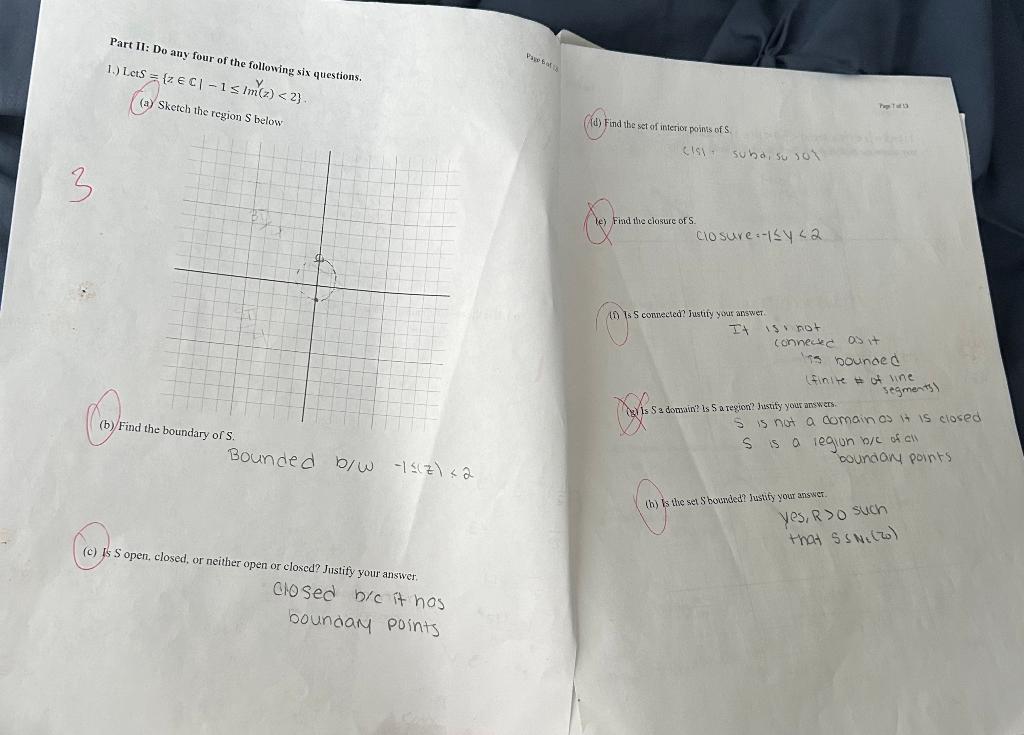 Page 6 of 13
Part II: Do any four of the following six questions.
1.) Let S = {z ∈ ℂ | − 1 ≤ Im(z) < 2}.
y
(a) Sketch the region S below
3
(b) Find the boundary of S.
Bounded b/w -1≤(z) < 2
(c) Is S open, closed, or neither open or closed? Justify your answer.
Closed b/c it has
boundary points
Page 7 of 13
(d) Find the set of interior points of S.
(e) Find the closure of S.
closure = -1≤y<2
(f) Is S connected? Justify your answer.
It is not
connected as it
is bounded
(finite # of line
segments)
(g) Is S a domain? Is S a region? Justify your answers.
S is not a domain as it is closed
S is a region b/c of all
boundary points
(h) Is the set S bounded? Justify your answer.
yes, R>0 such
that S